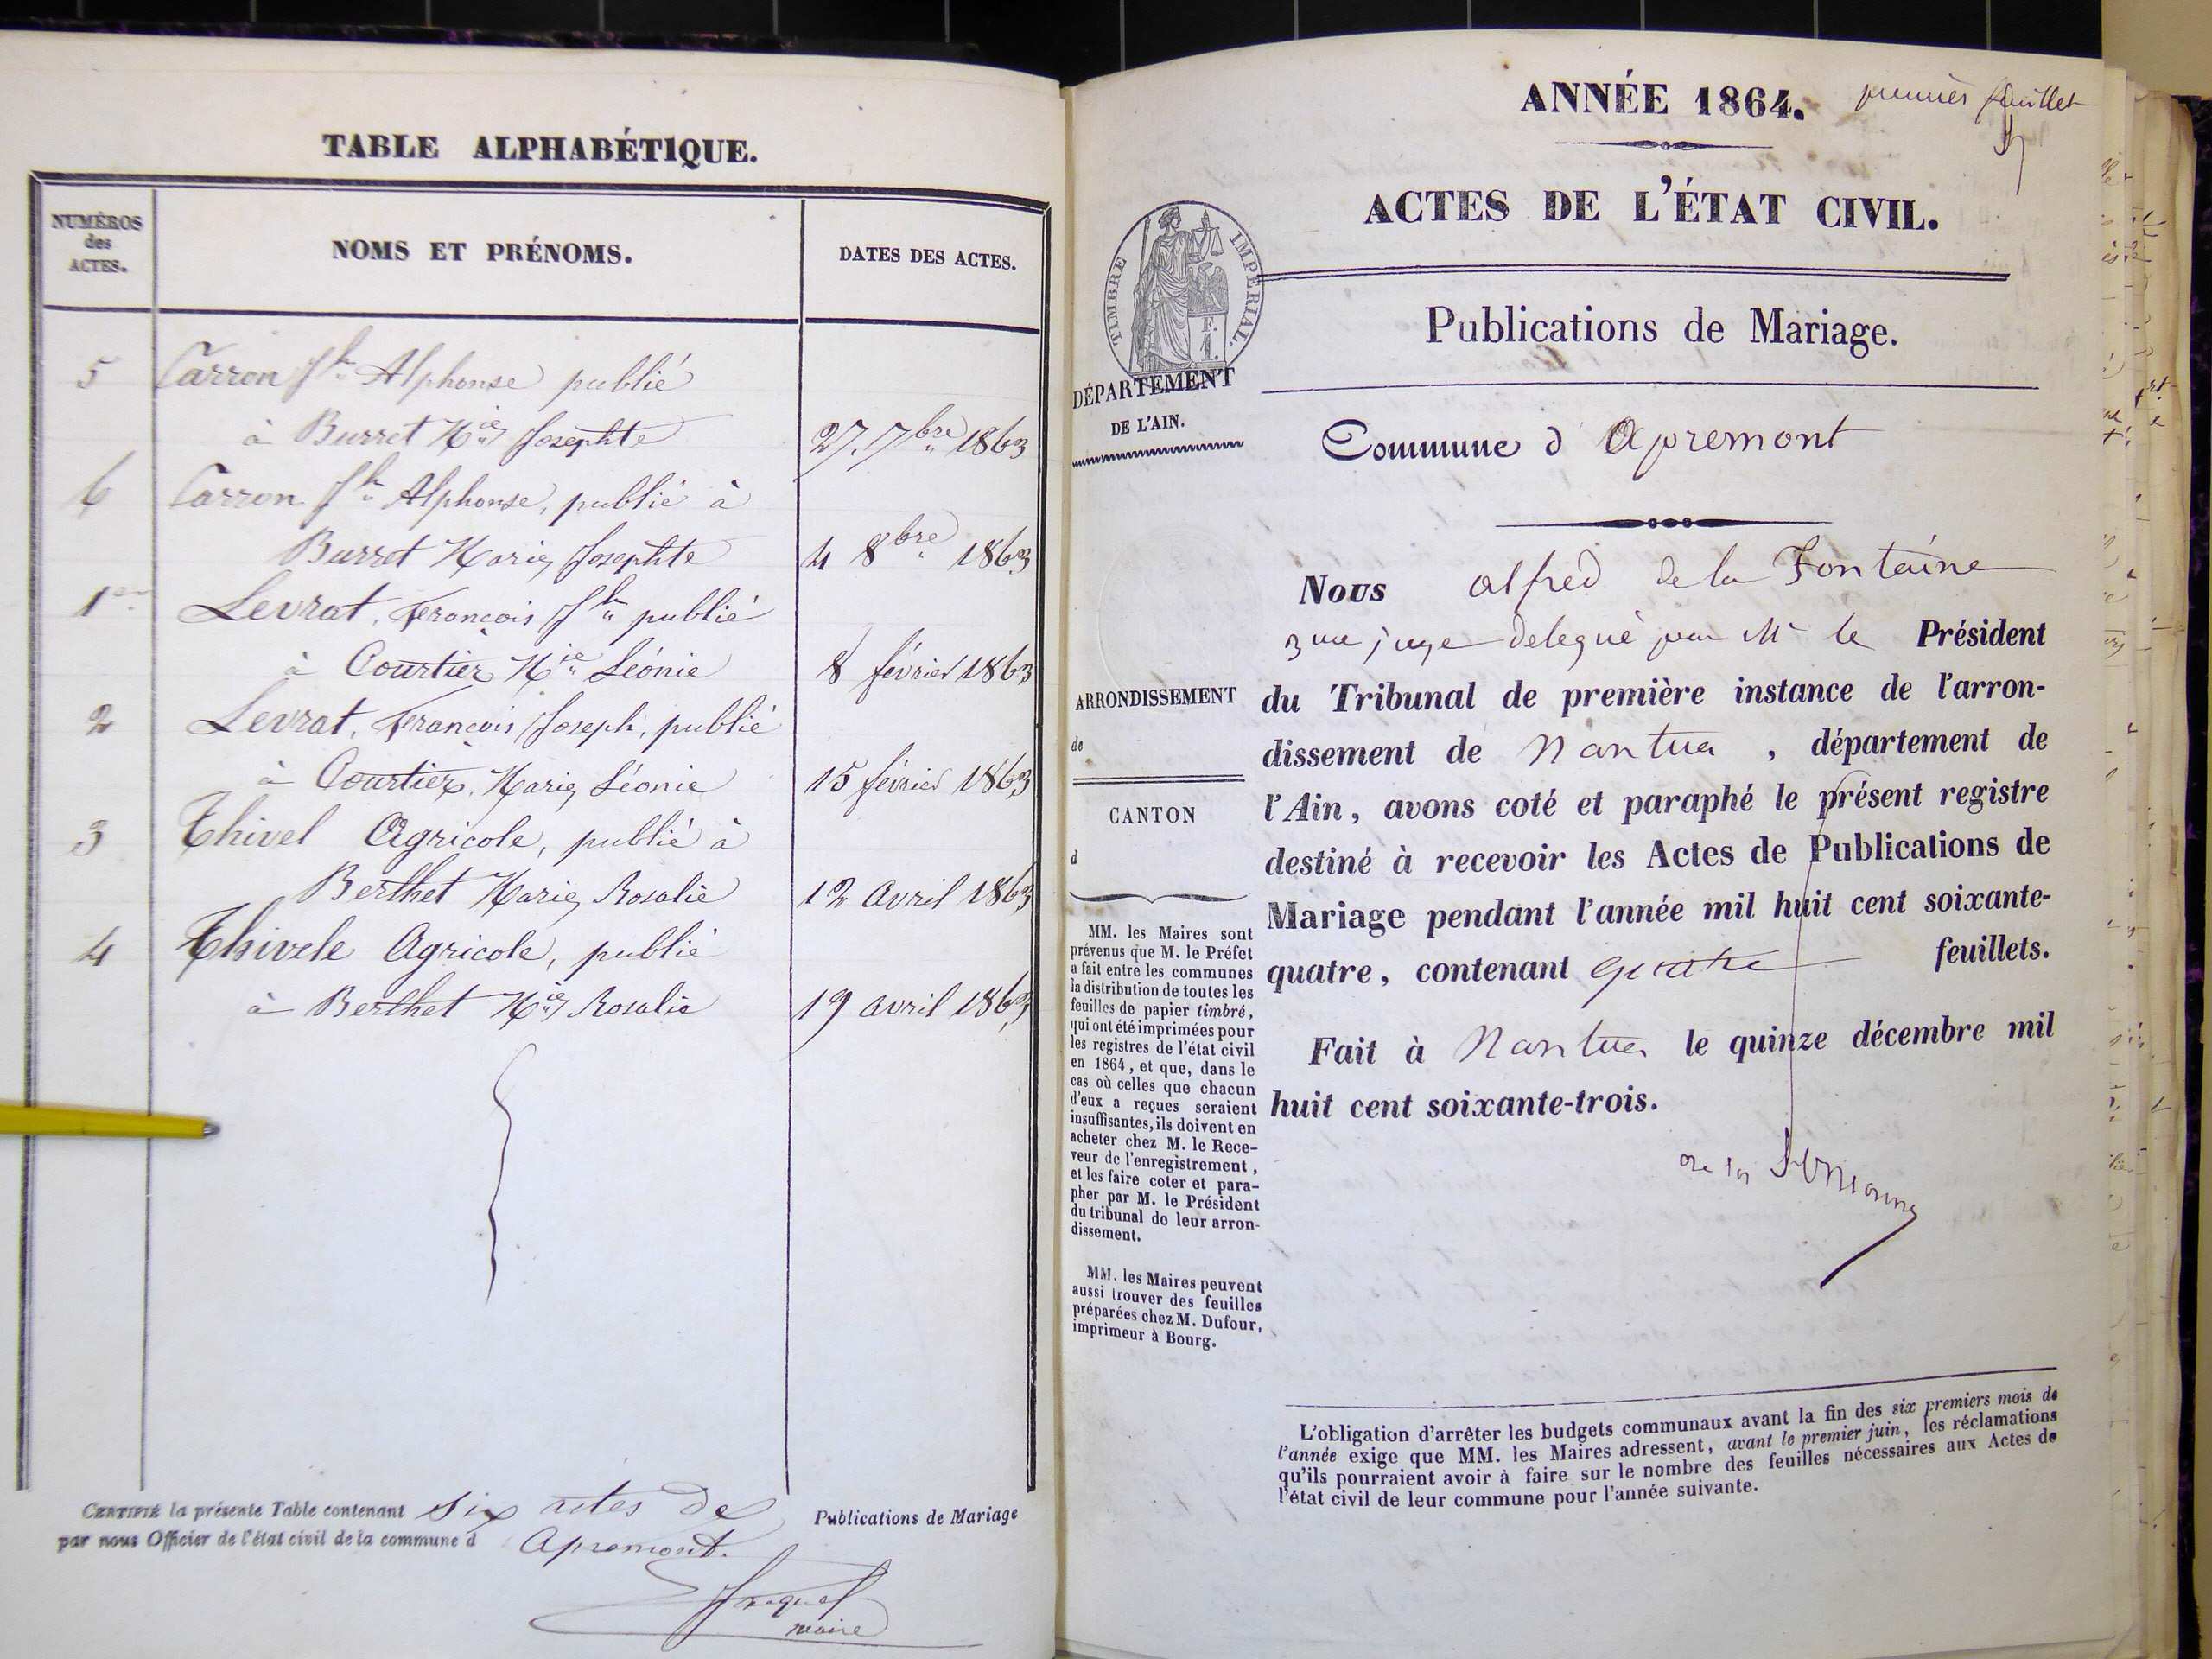 TABLE ALPHABÉTIQUE.
NUMÉROS
des
ACTES.
NOMS ET PRÉNOMS.
DATES DES ACTES.
5 Carron Jh Alphonse publié
à Burret Mie Josephte 27. 7bre 1863
6 Carron Jh Alphonse, publié à
Burret Marie Josephte 4 8bre 1863
1er Levrat, François Jh publié
à Courtier Mie Léonie 8 février 1863
2 Levrat, François Joseph, publié
à Courtier, Marie Léonie 15 février 1863
3 Thivel Agricole, publié à
Berthet Marie Rosalie 12 avril 1863
4 Thivele Agricole, publié
à Berthet Mie Rosalie 19 avril 1863
CERTIFIÉ la présente Table contenant six actes de Publications de Mariage
par nous Officier de l'état civil de la commune d Apremont.
maire
ANNÉE 1864.
premier feuillet
ACTES DE L'ÉTAT CIVIL.
TIMBRE IMPÉRIAL.
F.
1.
Publications de Mariage.
DÉPARTEMENT
DE L'AIN.
Commune d' Apremont
ARRONDISSEMENT
de
CANTON
d
MM. les Maires sont
prévenus que M. le Préfet
a fait entre les communes
la distribution de toutes les
feuilles de papier timbré,
qui ont été imprimées pour
les registres de l'état civil
en 1864, et que, dans le
cas où celles que chacun
d'eux a reçues seraient
insuffisantes, ils doivent en
acheter chez M. le Rece-
veur de l'enregistrement,
et les faire coter et para-
pher par M. le Président
du tribunal de leur arron-
dissement.
MM. les Maires peuvent
aussi trouver des feuilles
préparées chez M. Dufour,
imprimeur à Bourg.
Nous alfred de la Fontaine
juge delegué par Mr le Président
du Tribunal de première instance de l'arron-
dissement de Nantua, département de
l'Ain, avons coté et paraphé le présent registre
destiné à recevoir les Actes de Publications de
Mariage pendant l'année mil huit cent soixante-
quatre, contenant quatre feuillets.
Fait à Nantua le quinze décembre mil
huit cent soixante-trois.
L'obligation d'arrêter les budgets communaux avant la fin des six premiers mois de
l'année exige que MM. les Maires adressent, avant le premier juin, les réclamations
qu'ils pourraient avoir à faire sur le nombre des feuilles nécessaires aux Actes de
l'état civil de leur commune pour l'année suivante.